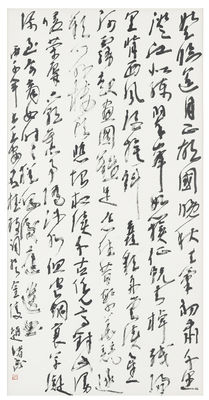 登臨送目正故國晚秋天氣初肅千里
澄江似練翠峰如簇征帆去棹殘陽
里背西風酒旗斜矗彩舟雲淡星
河鷺起畫圖難足念往昔繁華競逐
嘆門外樓頭悲恨相續千古憑高對此謾
嗟榮辱六朝舊事隨流水但寒煙衰草凝
綠至今商女時時猶唱後庭遺曲